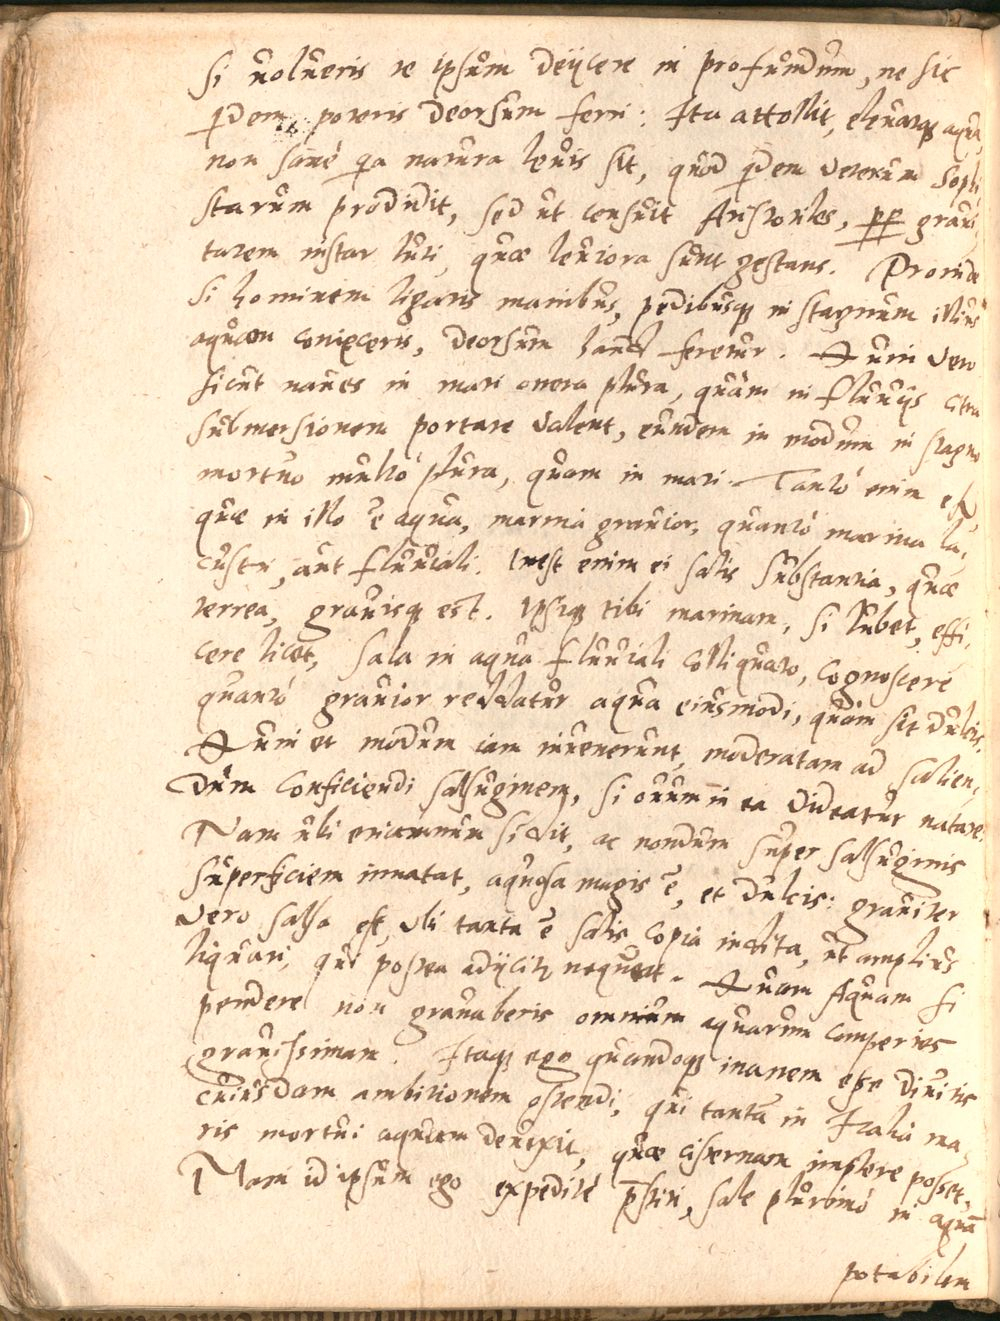 Si uolueris te ipsum deijcere in profundum, ne sic
qdem poteris deorsum ferri: Ita attollit, eleuatq aqua,
non sané qa natura leuis sit, quod qdem veterum Sophi
starum prodidit, sed ut censuit Aristoteles, pp graui
tatem instar luti, quæ leuiora sunt gestans. Proinde
si hominem ligatis manibus, pedibusq in stagnum illius
aquam conieceris, deorsum haud feretur. Quin vero
sicut naues in mari onera plura, quàm in fluuijs citra
submersionem portare valent, eundem in modum in stagno
mortuo multò plura, quam in mari. Tantò enim est
quæ in illo ē aqua, marina grauior, quantò marina la,
custri, aut fluuiali. Inest enim ei salis substantia, quæ
terrea, grauisq est. Ipsiq tibi marinam, si lubet, effi,
cere licet, sala in aqua fluuiali colliquato, cognoscere
quantò grauior reddatur aqua eiusmodi, quàm sit dulcis.
Quin et modum iam inuenerunt, moderatam ad salien,
dum conficiendi salsuginem, si ouum in ea videatur natare.
Nam ubi etiamnum sidit, ac nondum super salsuginis
superficiem innatat, aquosa magis ē, et dulcis: grauiter
vero salsa est, ubi tanta ē salis copia indita, ut amplius
liquari, qui postea adijcitr nequeat. Quam Aquam si
pendere non grauaberis omnium aquarum comperies
grauissimam. Itaq ego quandoq inanem esse diuitis
cuiusdam ambitionem ostendi, qui tantā in Italia ma,
ris mortui aquam deuexit, quæ cisternam implere posset,
Nam id ipsum ego expeditè pstiti, sale plurimò in aquā
potabilem